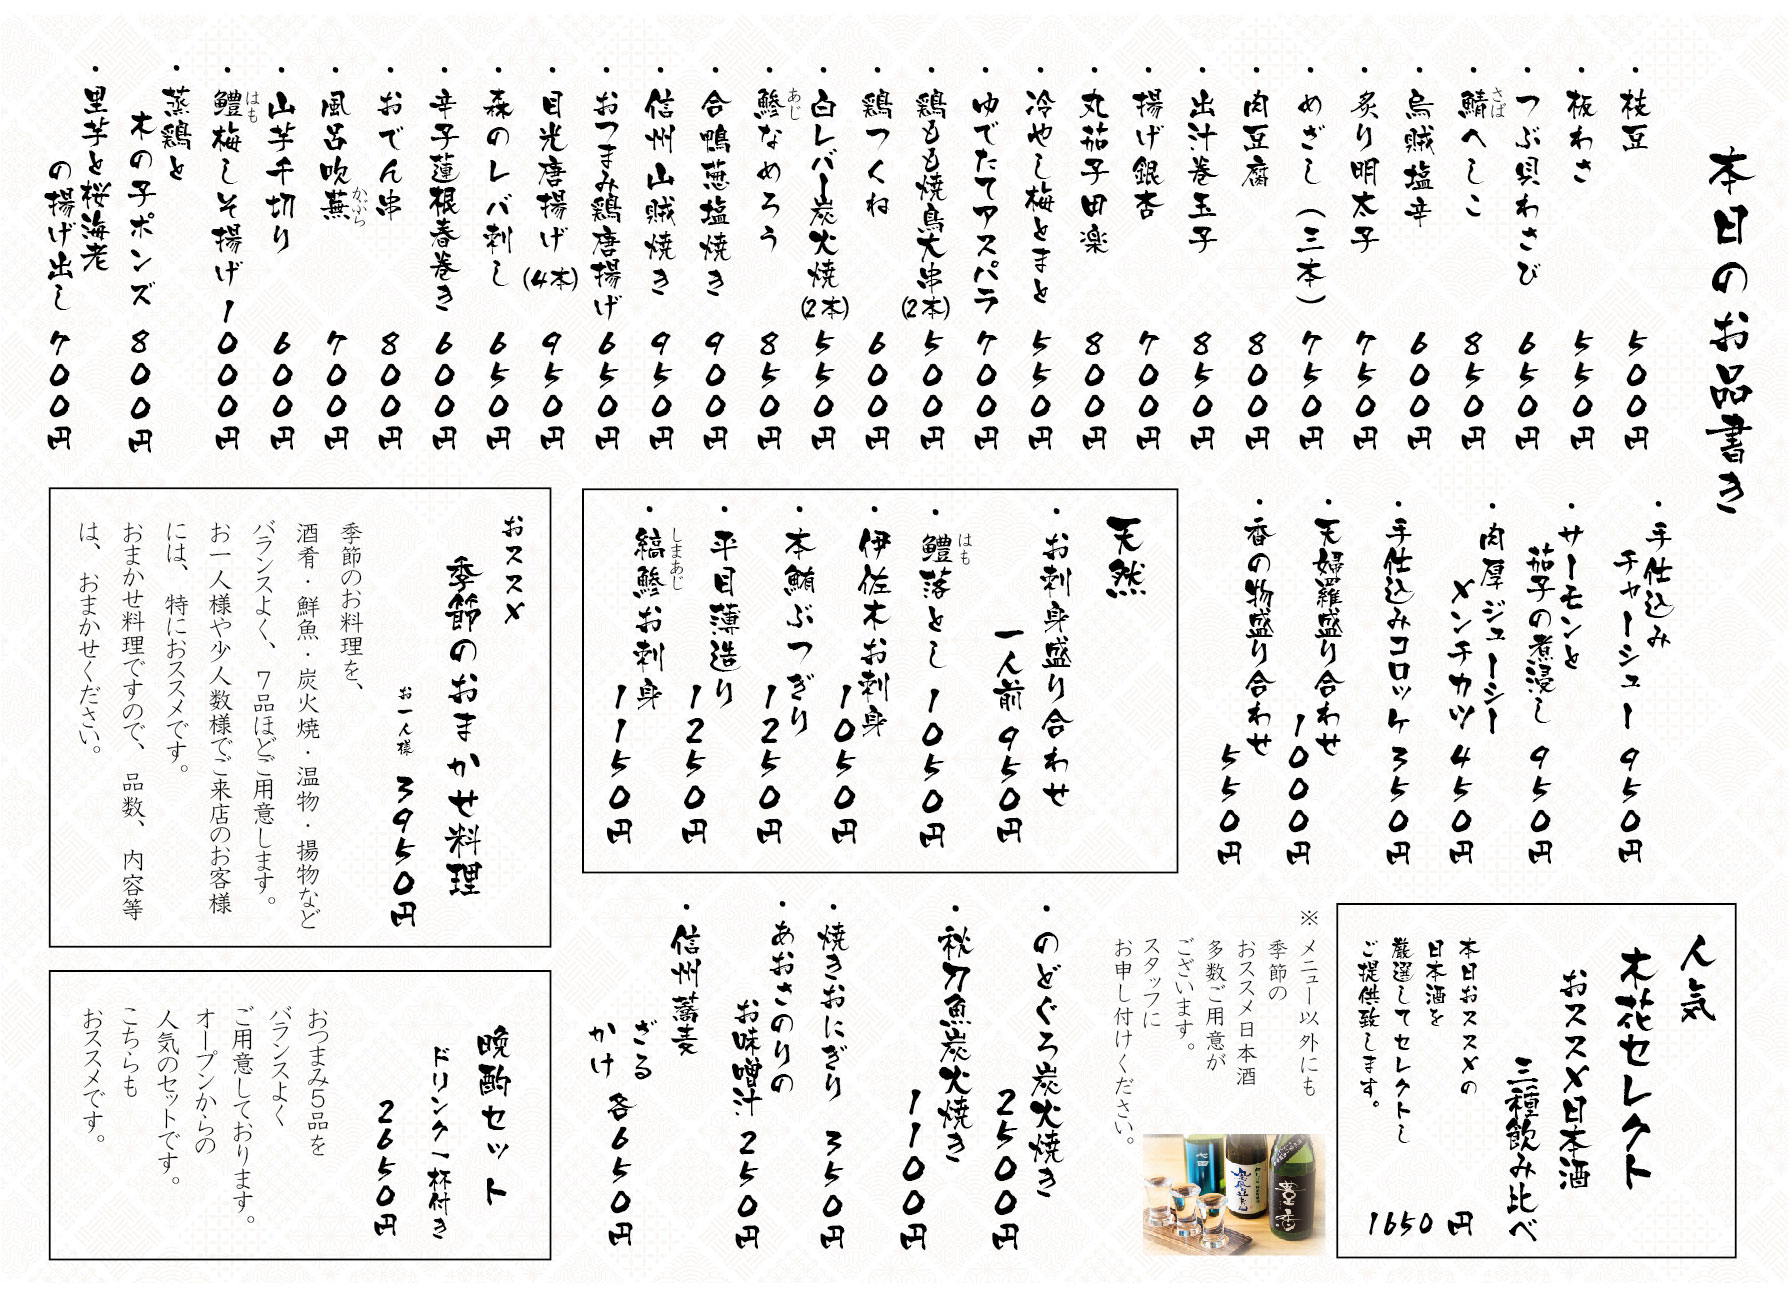 本日のお品書き
・枝豆 500円
・板わさ 550円
・つぶ貝わさび 650円
・鯖へしこ 850円
さば
・烏賊塩辛 600円
・炙り明太子 750円
・めざし（三本） 750円
・肉豆腐 800円
・出汁巻玉子 850円
・揚げ銀杏 700円
・丸茄子田楽 800円
・冷やし梅とまと 550円
・ゆでたてアスパラ 700円
・鶏もも焼鳥大串(2本) 500円
・鶏つくね 600円
・白レバー炭火焼(2本) 550円
・鯵なめろう 850円
あじ
・合鴨葱塩焼き 900円
・信州山賊焼き 950円
・おつまみ鶏唐揚げ 650円
・目光唐揚げ(4本) 950円
・森のレバ刺し 650円
・辛子蓮根春巻き 600円
・おでん串 800円
・風呂吹蕪 700円
かぶら
・山芋千切り 600円
・鱧梅しそ揚げ 1000円
はも
・蒸鶏と
木の子ポンズ 800円
・里芋と桜海老
の揚げ出し 700円
・手仕込み
チャーシュー 950円
・サーモンと
茄子の煮浸し 950円
・肉厚ジューシー
メンチカツ 450円
・手仕込みコロッケ 350円
・天婦羅盛り合わせ
1000円
・香の物盛り合わせ
550円
天然
・お刺身盛り合わせ
一人前 950円
・鱧落とし 1050円
はも
・伊佐木お刺身
1050円
・本鮪ぶつぎり
1250円
・平目薄造り
1250円
・縞鯵お刺身
しまあじ
1150円
おススメ
季節のおまかせ料理
お一人様 3950円
季節のお料理を、
酒肴・鮮魚・炭火焼・温物・揚物など
バランスよく、7品ほどご用意します。
お一人様や少人数様でご来店のお客様
には、特におススメです。
おまかせ料理ですので、品数、内容等
は、おまかせください。
人気
木花セレクト
おススメ日本酒
三種飲み比べ
本日おススメの
日本酒を
厳選してセレクトし
ご提供致します。
1650円
※メニュー以外にも
季節の
おススメ日本酒
多数ご用意が
ございます。
スタッフに
お申し付けください。
・のどぐろ炭火焼き
2500円
・秋刀魚炭火焼き
1100円
・焼きおにぎり 350円
・あおさのりの
お味噌汁 250円
・信州蕎麦
ざる
かけ 各650円
晩酌セット
ドリンク一杯付き
2650円
おつまみ5品を
バランスよく
ご用意しております。
オープンからの
人気のセットです。
こちらも
おススメです。